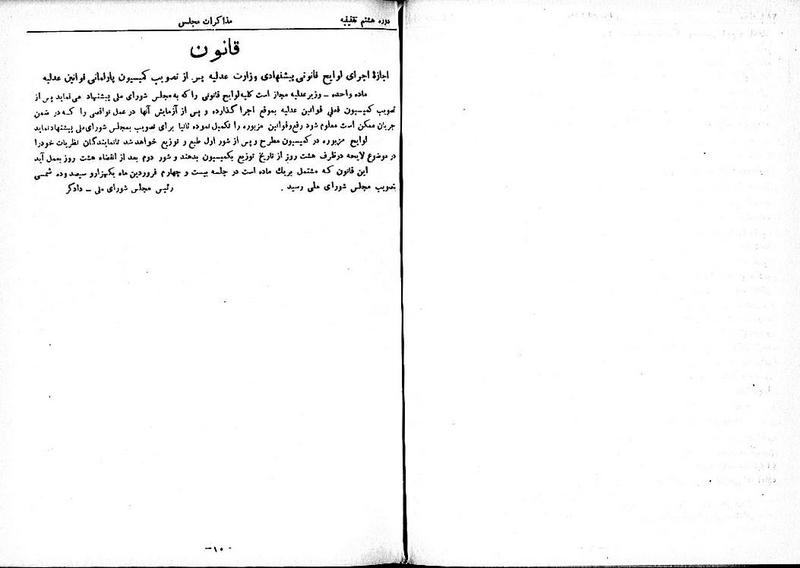 دوره هشتم تقنینیه
مذاکرات مجلس
قانون
اجازهٔ اجرای لوایح قانونی پیشنهادی وزارت عدلیه پس از تصویب کمیسیون پارلمانی قوانین عدلیه
ماده واحده ـ وزیر عدلیه مجاز است کلیه لوایح قانونی را که به مجلس شورای ملی پیشنهاد می نماید پس از
تصویب کمیسیون فعلی قوانین عدلیه بموقع اجرا گذارده و پس از آزمایش آنها در عمل نواقصی را که در ضمن
جریان ممکن است معلوم شود رفع و قوانین مزبوره را تکمیل نموده ثانیا برای تصویب بمجلس شورای ملی پیشنهاد نماید
لوایح مزبوره در کمیسیون مطرح و پس از شور اول طبع و توزیع خواهد شد تا نمایندگان نظریات خود را
در موضوع لایحه در ظرف هشت روز از تاریخ توزیع بکمیسیون بدهند و شور دوم بعد از انقضاء هشت روز بعمل آید
این قانون که مشتمل بریك ماده است در جلسه بیست و چهارم فروردین ماه یکهزار و سیصد و ده شمسی
بتصویب مجلس شورای ملی رسید . رئیس مجلس شورای ملی ـ دادگر
ـ۱۰ـ